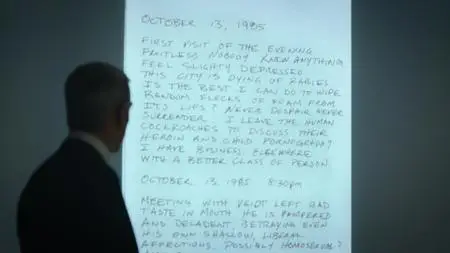 OCTOBER 13, 1985
FIRST VISIT OF THE EVENING
FRUITLESS NOBODY KNEW ANYTHING
FEEL SLIGHTLY DEPRESSED
THIS CITY IS DYING OF RABIES
IS THE BEST I CAN DO TO WIPE
RANDOM FLECKS OF FOAM FROM
ITS LIPS? NEVER DESPAIR NEVER
SURRENDER I LEAVE THE HUMAN
COCKROACHES TO DISCUSS THEIR
HEROIN AND CHILD PORNOGRAPHY
I HAVE BUSINESS ELSEWHERE
WITH A BETTER CLASS OF PERSON
OCTOBER 13, 1985 8:30pm
MEETING WITH VEIDT LEFT BAD
TASTE IN MOUTH HE IS PAMPERED
AND DECADENT, BETRAYING EVEN
HIS OWN SHALLOW, LIBERAL
AFFECTIONS. POSSIBLY HOMOSEXUAL?